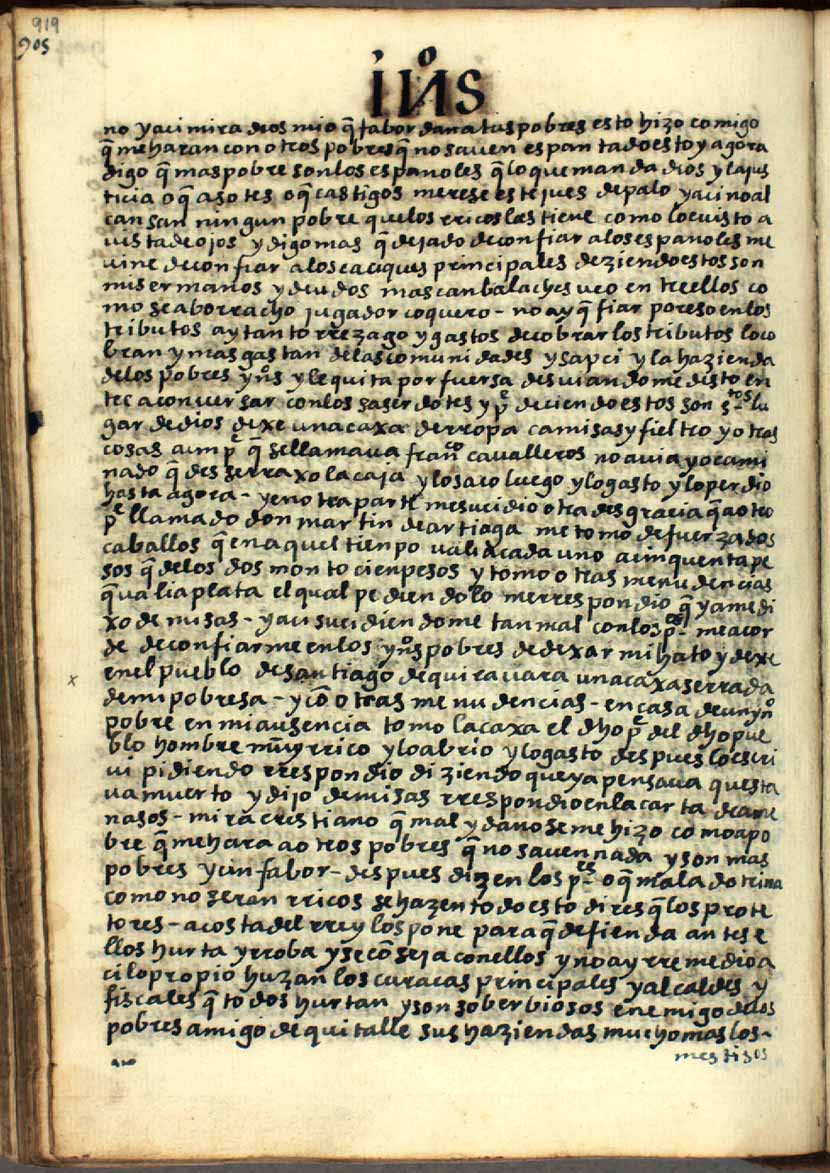 919
905
iUNs
no y aci mira dios mio q̃ fabor dan a tus pobres esto hizo comigo
q̃ me haran con otros pobres q̃ no saven espantado estoy agora
digo q̃ mas pobre son los espanoles q̃ lo que manda dios y la jus
ticia o q̃ asotes o q̃ castigos merese este jues de palo y aci no al
cansan ningun pobre que los rricos les tiene como lo e uisto a
uista de ojos y digo mas q̃ dejado de confiar a los espanoles me
uine de confiar a los caciques prencipales deziendo estos son
mis ermanos y deudos mas canbalaches ueo entre ellos co
mo se aborracho jugador coquero - no ay q̃ fiar por eso en los
tributos ay tanto rrezago y gastos de cobrar los tributos lo co
bran y mas gastan de las comunidades y sapci y la hazienda
de los pobres yn̊s y le quita por fuersa desuiandome desto en
tre a conuersar con los saserdotes y p̃e deciendo estos son s.tos lu
gar de dios dexe una caxa de rropa camisas y fieltro y otras
cosas a un p̃e q̃ se llamaua fran.co cavalleros no auia yo cami
nado q̃ desserraxo la caja y lo saco luego y lo gasto y lo perdio
hasta agora - y en otra parte me sucidio otra desgracia q̃ a otro
p̃e llamado don martin de artiaga me tomo de fuerza dos
caballos q̃ en aquel tienpo ualia cada uno a cinquenta pe
sos q̃ de los dos monto cien pesos y tomo otras menudencias
q̃ ualia plata el qual pediendolo me rrespondio q̃ ya me di
xo de misas - y aci sucidiendome tan mal con los p̃es - me acor
de de confiarme en los yn̊s pobres de dexar mi hato y dexe
x
en el pueblo de santiago de quirauara una caxa serrada
de mi pobresa - y cõ otras menudencias - en casa de un yn̊
pobre en mi ausencia tomo la caxa el dho p̃e del dho pue
blo hombre mũy rrico y lo abrio y lo gasto despues lo escri
ui pidiendo rrespondio diziendo que ya pensaua questa
ua muerto y dijo de misas rrespondio en la carta de ame
nasos - mira crestiano q̃ mal y dano se me hizo como a po
bre q̃ me hara a otros pobres q̃ no saven nada y son mas
pobres y cin fabor - despues dizen los p̃es - o q̃ mala dotrina
como no seran rricos se hazen todo esto dires q̃ los prote
tores - a costa del rrey los pone para q̃ defienda antes e
llos hurta y rroba y se cõseja con ellos y no ay rremedio a
ci lo propio huzan los curacas prencipales y alcaldes y
fiscales q̃ todos hurtan y son soberbiosos enemigo de los
pobres amigo de quitalle sus haziendas mucho mas los -
mestisos